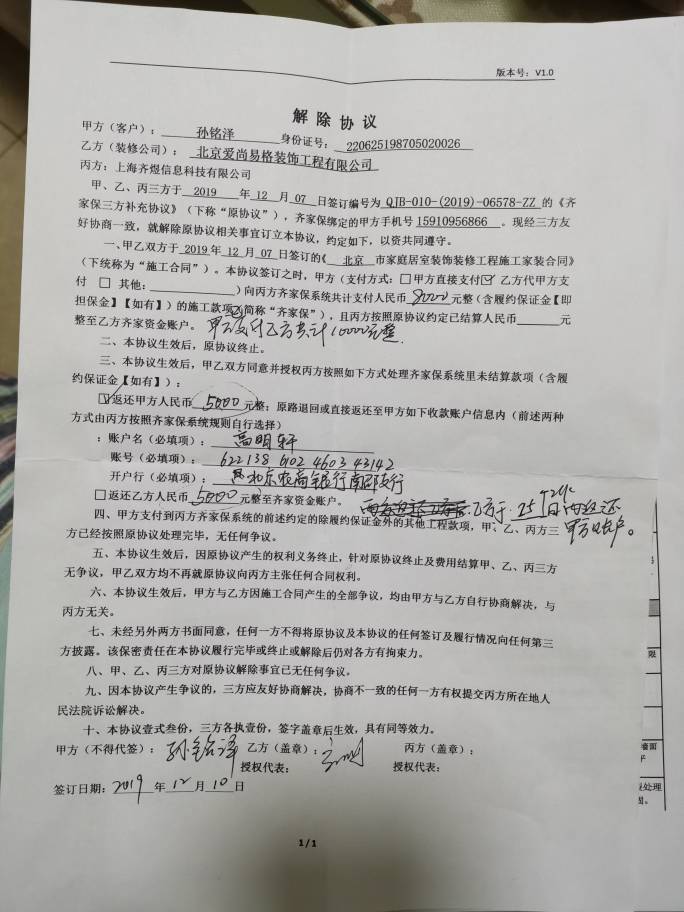 版本号：V1.0
解除协议
甲方（客户）： 孙铭泽 身份证号： 220625198705020026
乙方（装修公司）： 北京爱尚易格装饰工程有限公司
丙方：上海齐煜信息科技有限公司
甲、乙、丙三方于 2019 年 12 月 07 日签订编号为 QJB-010-(2019)-06578-ZZ 的《齐
家保三方补充协议》（下称“原协议”），齐家保绑定的甲方手机号 15910956866 。现经三方友
好协商一致，就解除原协议相关事宜订立本协议，约定如下，以资共同遵守。
一、甲乙双方于 2019 年 12 月 07 日签订的《 北京 市家庭居室装饰装修工程施工家装合同》
（下统称为“施工合同”）。本协议签订之时，甲方（支付方式：☐甲方直接支付☑ 乙方代甲方支
付 ☐ 其他： ）向丙方齐家保系统共计支付人民币 元整（含履约保证金【即
担保金】【如有】）的施工款项 简称“齐家保”），且丙方按照原协议约定已结算人民币 元
整至乙方齐家资金账户。 甲方支付乙方共计10000元整.
二、本协议生效后，原协议终止。
三、本协议生效后，甲乙双方同意并授权丙方按照如下方式处理齐家保系统里未结算款项（含履
约保证金【如有】）：
☑返还甲方人民币 5000 元整；原路退回或直接返还至甲方如下收款账户信息内（前述两种
方式由丙方按照齐家保系统规则自行选择）
：账户名（必填项）： 高明轩
账号（必填项）： 622138 0102 4603 43142
开户行（必填项）： 北京农商银行南邵支行
☐返还乙方人民币 5000 元整至齐家资金账户。 乙方于 25 日内返还
甲方账户。
四、甲方支付到丙方齐家保系统的前述约定的除履约保证金外的其他工程款项，甲、乙、丙方三
方已经按照原协议处理完毕，无任何争议。
五、本协议生效后，因原协议产生的权利义务终止，针对原协议终止及费用结算甲、乙、丙三方
无争议，甲乙双方均不再就原协议向丙方主张任何合同权利。
六、本协议生效后，甲方与乙方因施工合同产生的全部争议，均由甲方与乙方自行协商解决，与
丙方无关。
七、未经另外两方书面同意，任何一方不得将原协议及本协议的任何签订及履行情况向任何第三
方披露。该保密责任在本协议履行完毕或终止或解除后仍对各方有拘束力。
八、甲、乙、丙三方对原协议解除事宜已无任何争议。
九、因本协议产生争议的，三方应友好协商解决，协商不一致的任何一方有权提交丙方所在地人
民法院诉讼解决。
十、本协议壹式叁份，三方各执壹份，签字盖章后生效，具有同等效力。
甲方（不得代签）： 孙铭泽 乙方（盖章）： 丙方（盖章）：
授权代表： 授权代表：
签订日期： 2019 年 12 月 10 日
1 / 1
限
墙面
处理